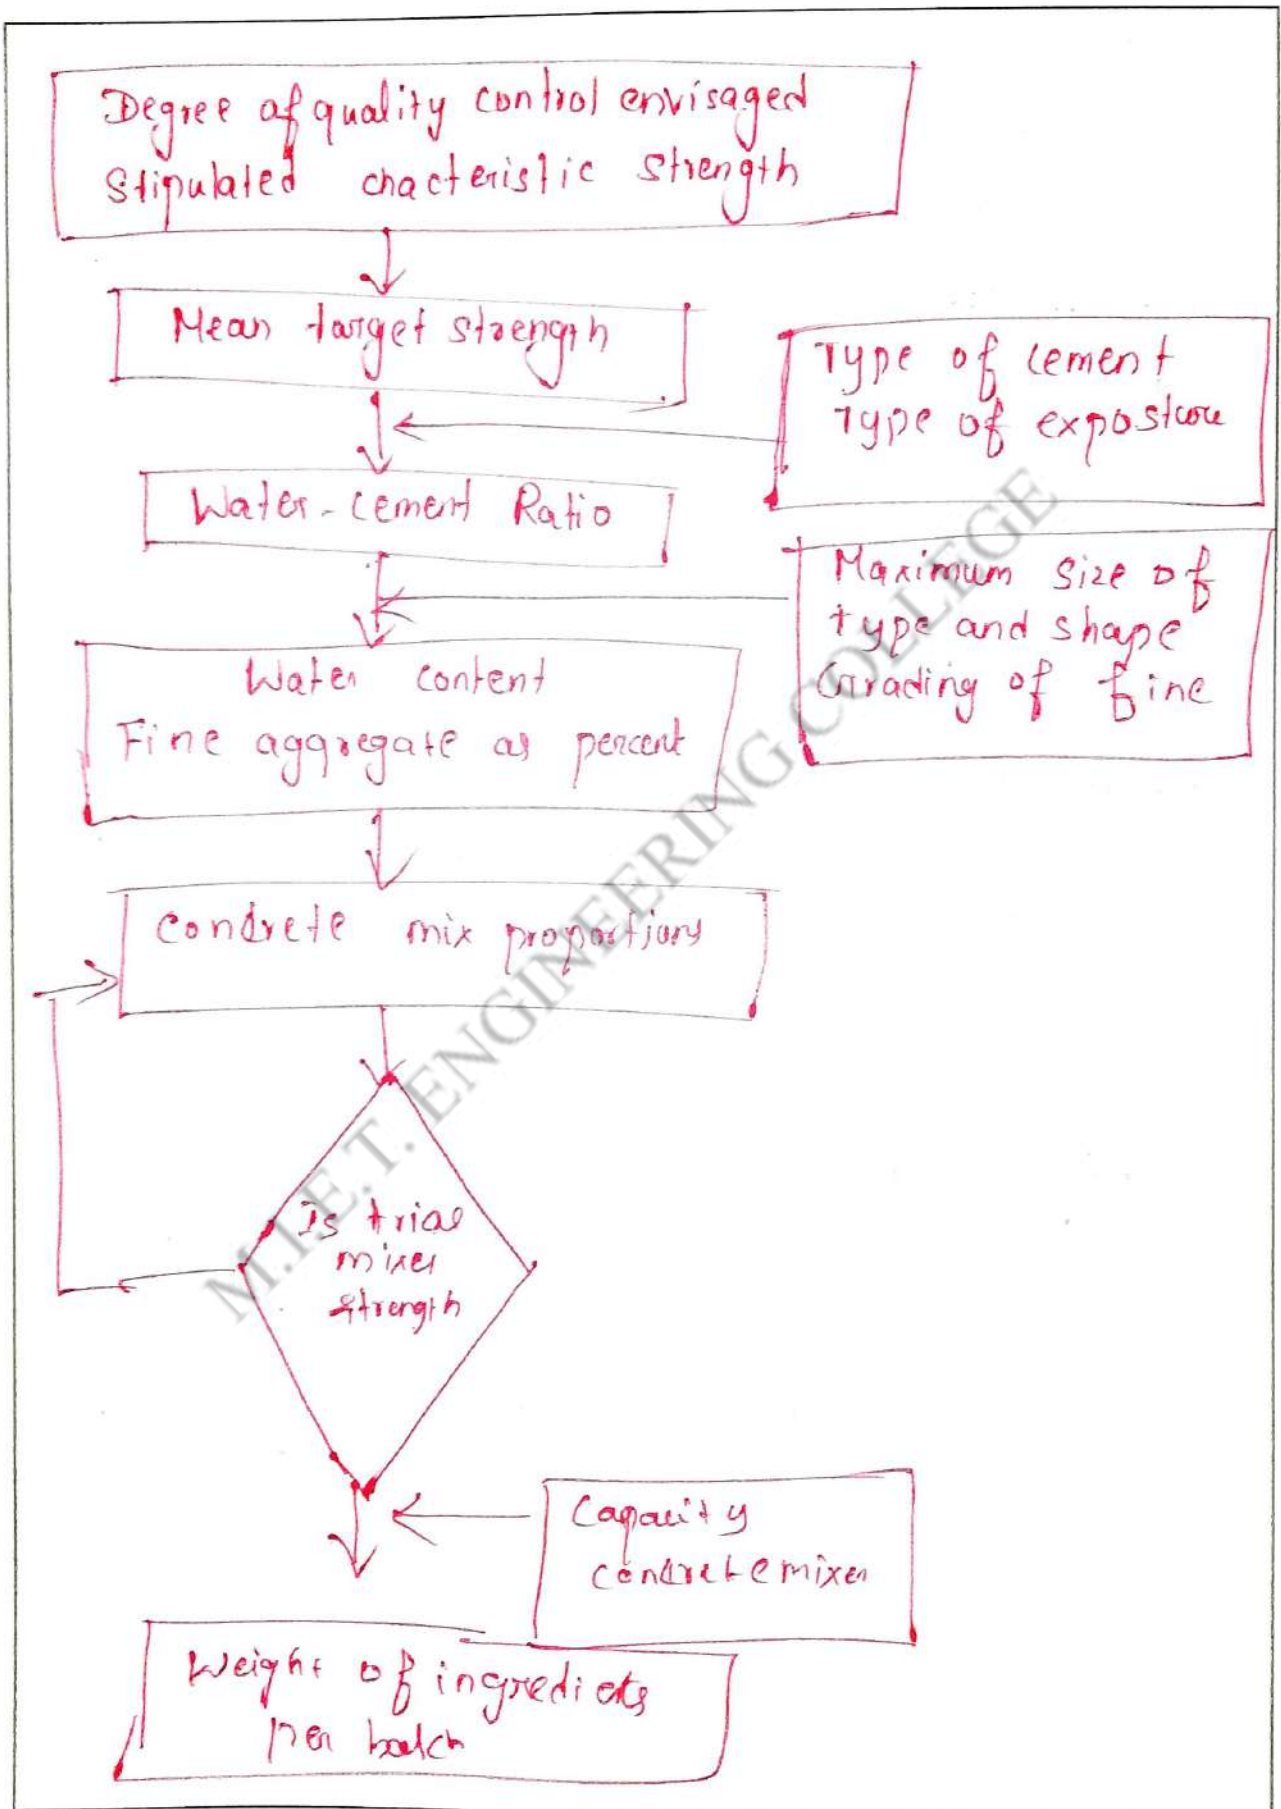 Degree of quality control envisaged
Stipulated chacteristic strength
Mean target strength
Type of cement
Type of exposture
Water-cement Ratio
Maximum size of
type and shape
Grading of fine
Water content
Fine aggregate as percent
Condrete mix proportions
Is trial
mixer
strength
Capacity
concrete mixer
Weight of ingredients
per batch
M.I.E.T. ENGINEERING COLLEGE